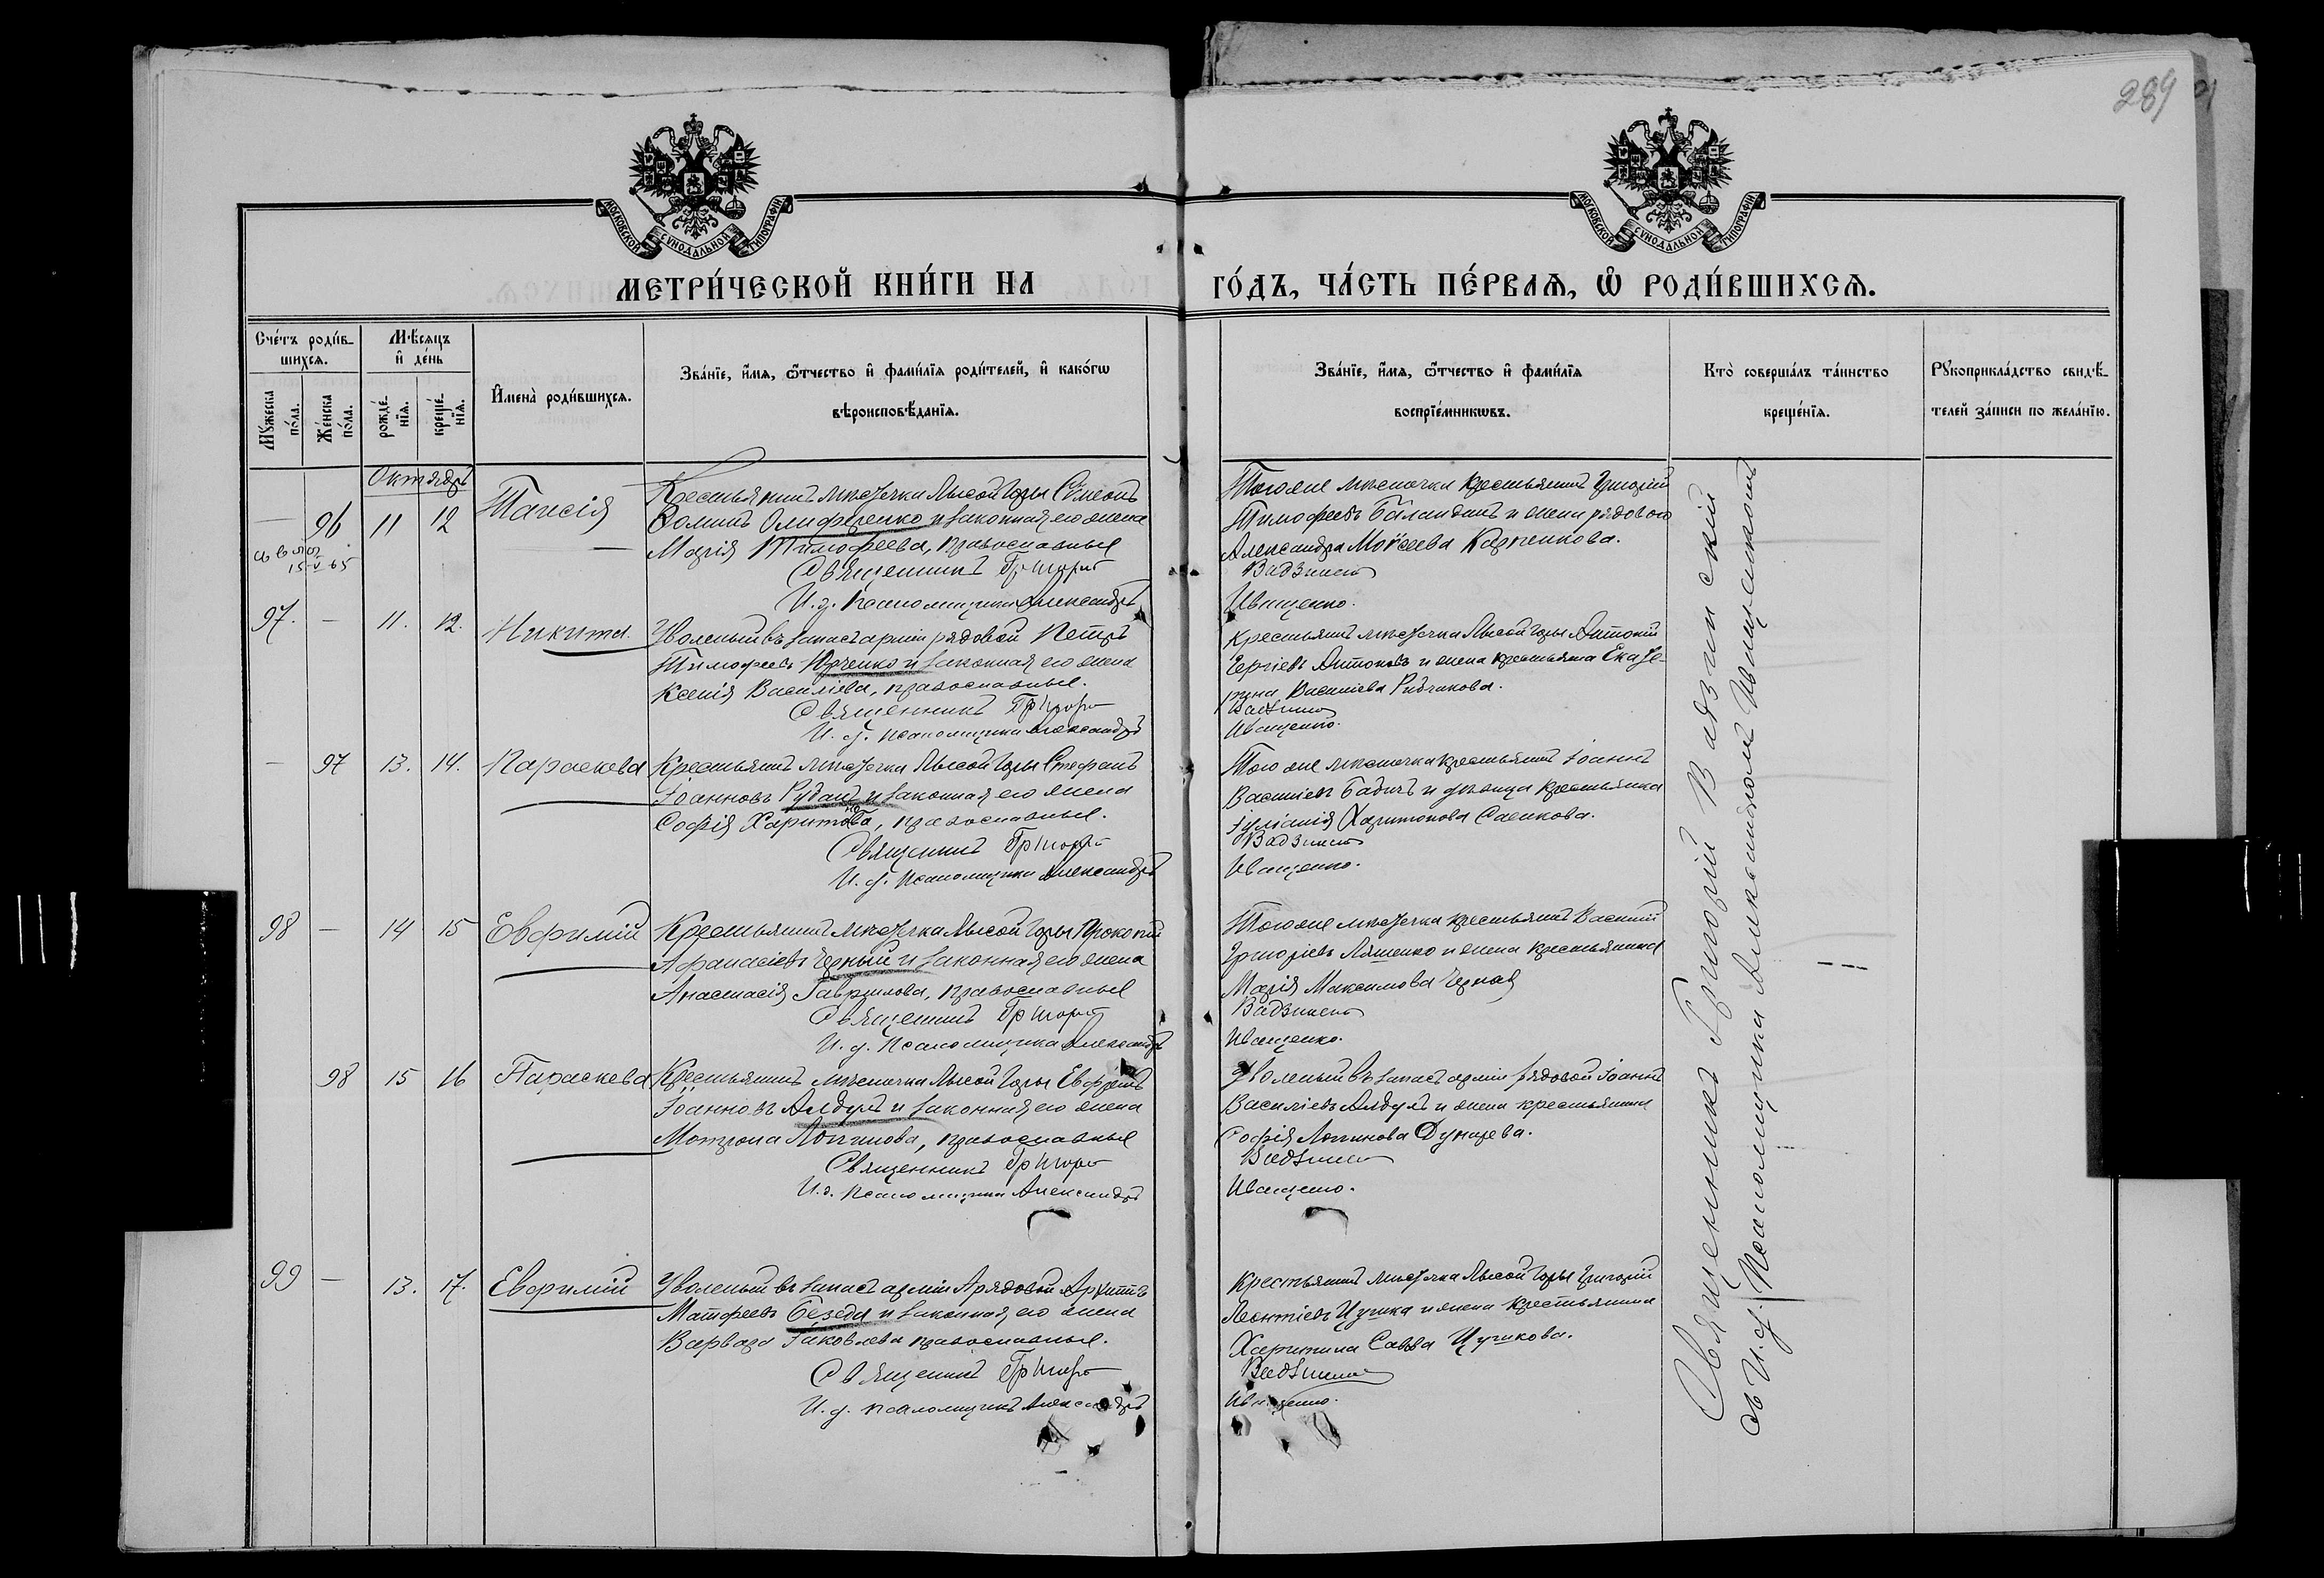 289
МОСКОВСКОЙ СУНОДАЛЬНОЙ ТИПОГРАФІИ
МОСКОВСКОЙ СУНОДАЛЬНОЙ ТИПОГРАФІИ
МЕТРИ́ЧЕСКОЙ КНИ́ГИ НА
ГО́ДЪ, ЧА́СТЬ ПЕ́РВАѦ, Ѡ҆ РОДИ́ВШИХСѦ.
Сче́тъ роди́в-
шихсѧ.
Мꙋ́жеска по́ла.
Же́нска по́ла.
Мѣ́сѧцъ
и҆ де́нь
рожде́-
нїѧ.
креще́-
нїѧ.
И҆мена̀ роди́вшихсѧ.
Зва́нїе, и҆́мѧ, ѻ҆́тчество и҆ фами́лїѧ роди́телей, и҆ како́гѡ
вѣроисповѣ́данїѧ.
Зва́нїе, и҆́мѧ, ѻ҆́тчество и҆ фами́лїѧ
воспрїе́мникѡвъ.
Кто̀ соверша́лъ та́инство
креще́нїѧ.
Рꙋкоприкла́дство свидѣ́-
телей за́писи по жела́нїю.
Октябрь
— 96 11 12 Таисія
Крестьянинъ мѣстечка Лысой Горы Симеонъ
Ѳоминъ Олиференко и законная его жена
Марія Тимофеева, православные
Священникъ Григорій
И. д. Псаломщика Александръ
Того же мѣстечка крестьянинъ Григорій
Тимофеевъ Баландинъ и жена рядового
Александра Моѵсеева Карпенкова.
Вадзинскій
Иващенко.
15-V 65
97. — 11. 12. Никита.
Уволеный въ запасъ арміи рядовой Петръ
Тимофеевъ Юрченко и законная его жена
Ксенія Василіева, православные.
Священникъ Григорій
И. д. псаломщика Александръ
Крестьянинъ мѣстечка Лысой Горы Антоній
Сергіевъ Антоновъ и жена крестьянина Екате-
рина Василіева
Вадзинскій
Иващенко.
— 97 13. 14. Параскева
Крестьянинъ мѣстечка Лысой Горы Стефанъ
Іоанновъ Рудань и законная его жена
Софія Харитонова, православные.
Священникъ Григорій
И. д. Псаломщика Александръ
Того же мѣстечка крестьянинъ Іоаннъ
Василіевъ Бабичъ и дѣвица крестьянка
Іуліанія Харитонова
Вадзинскій
Иващенко.
98 — 14 15 Евфимій
Крестьянинъ мѣстечка Лысой Горы Прокопій
Афанасіевъ Черный и законная его жена
Анастасія Гаврилова, православные
Священникъ Григорій
И. д. Псаломщика Александръ
Того же мѣстечка крестьянинъ Василій
Григоріевъ Ляшенко и жена крестьянина
Марія Максимова Черная
Вадзинскій
Иващенко.
98 15 16 Параскева
Крестьянинъ мѣстечка Лысой Горы Евфремъ
Іоанновъ Алдулъ и законная его жена
Матрона Логинова, православные
Священникъ Григорій
И. д. Псаломщика Александръ
Уволеный въ запасъ арміи рядовой Іоаннъ
Василіевъ Алдулъ и жена крестьянина
Софія Логинова Дунаева.
Вадзинскій
Иващенко.
99 — 13. 17. Евфимій
Уволеный въ запасъ арміи рядовой Архиппъ
Матфеевъ Безеда и законная его жена
Варвара Іаковлева православные.
Священникъ Григорій
И. д. псаломщика Александръ
Крестьянинъ мѣстечка Лысой Горы Григорій
Леонтіевъ Цушка и жена крестьянина
Харитина Савва Цушкова.
Вадзинскій
Иващенко.
Священникъ Григорій Вадзинскій
съ И. д. Псаломщика Александромъ Иващенкомъ